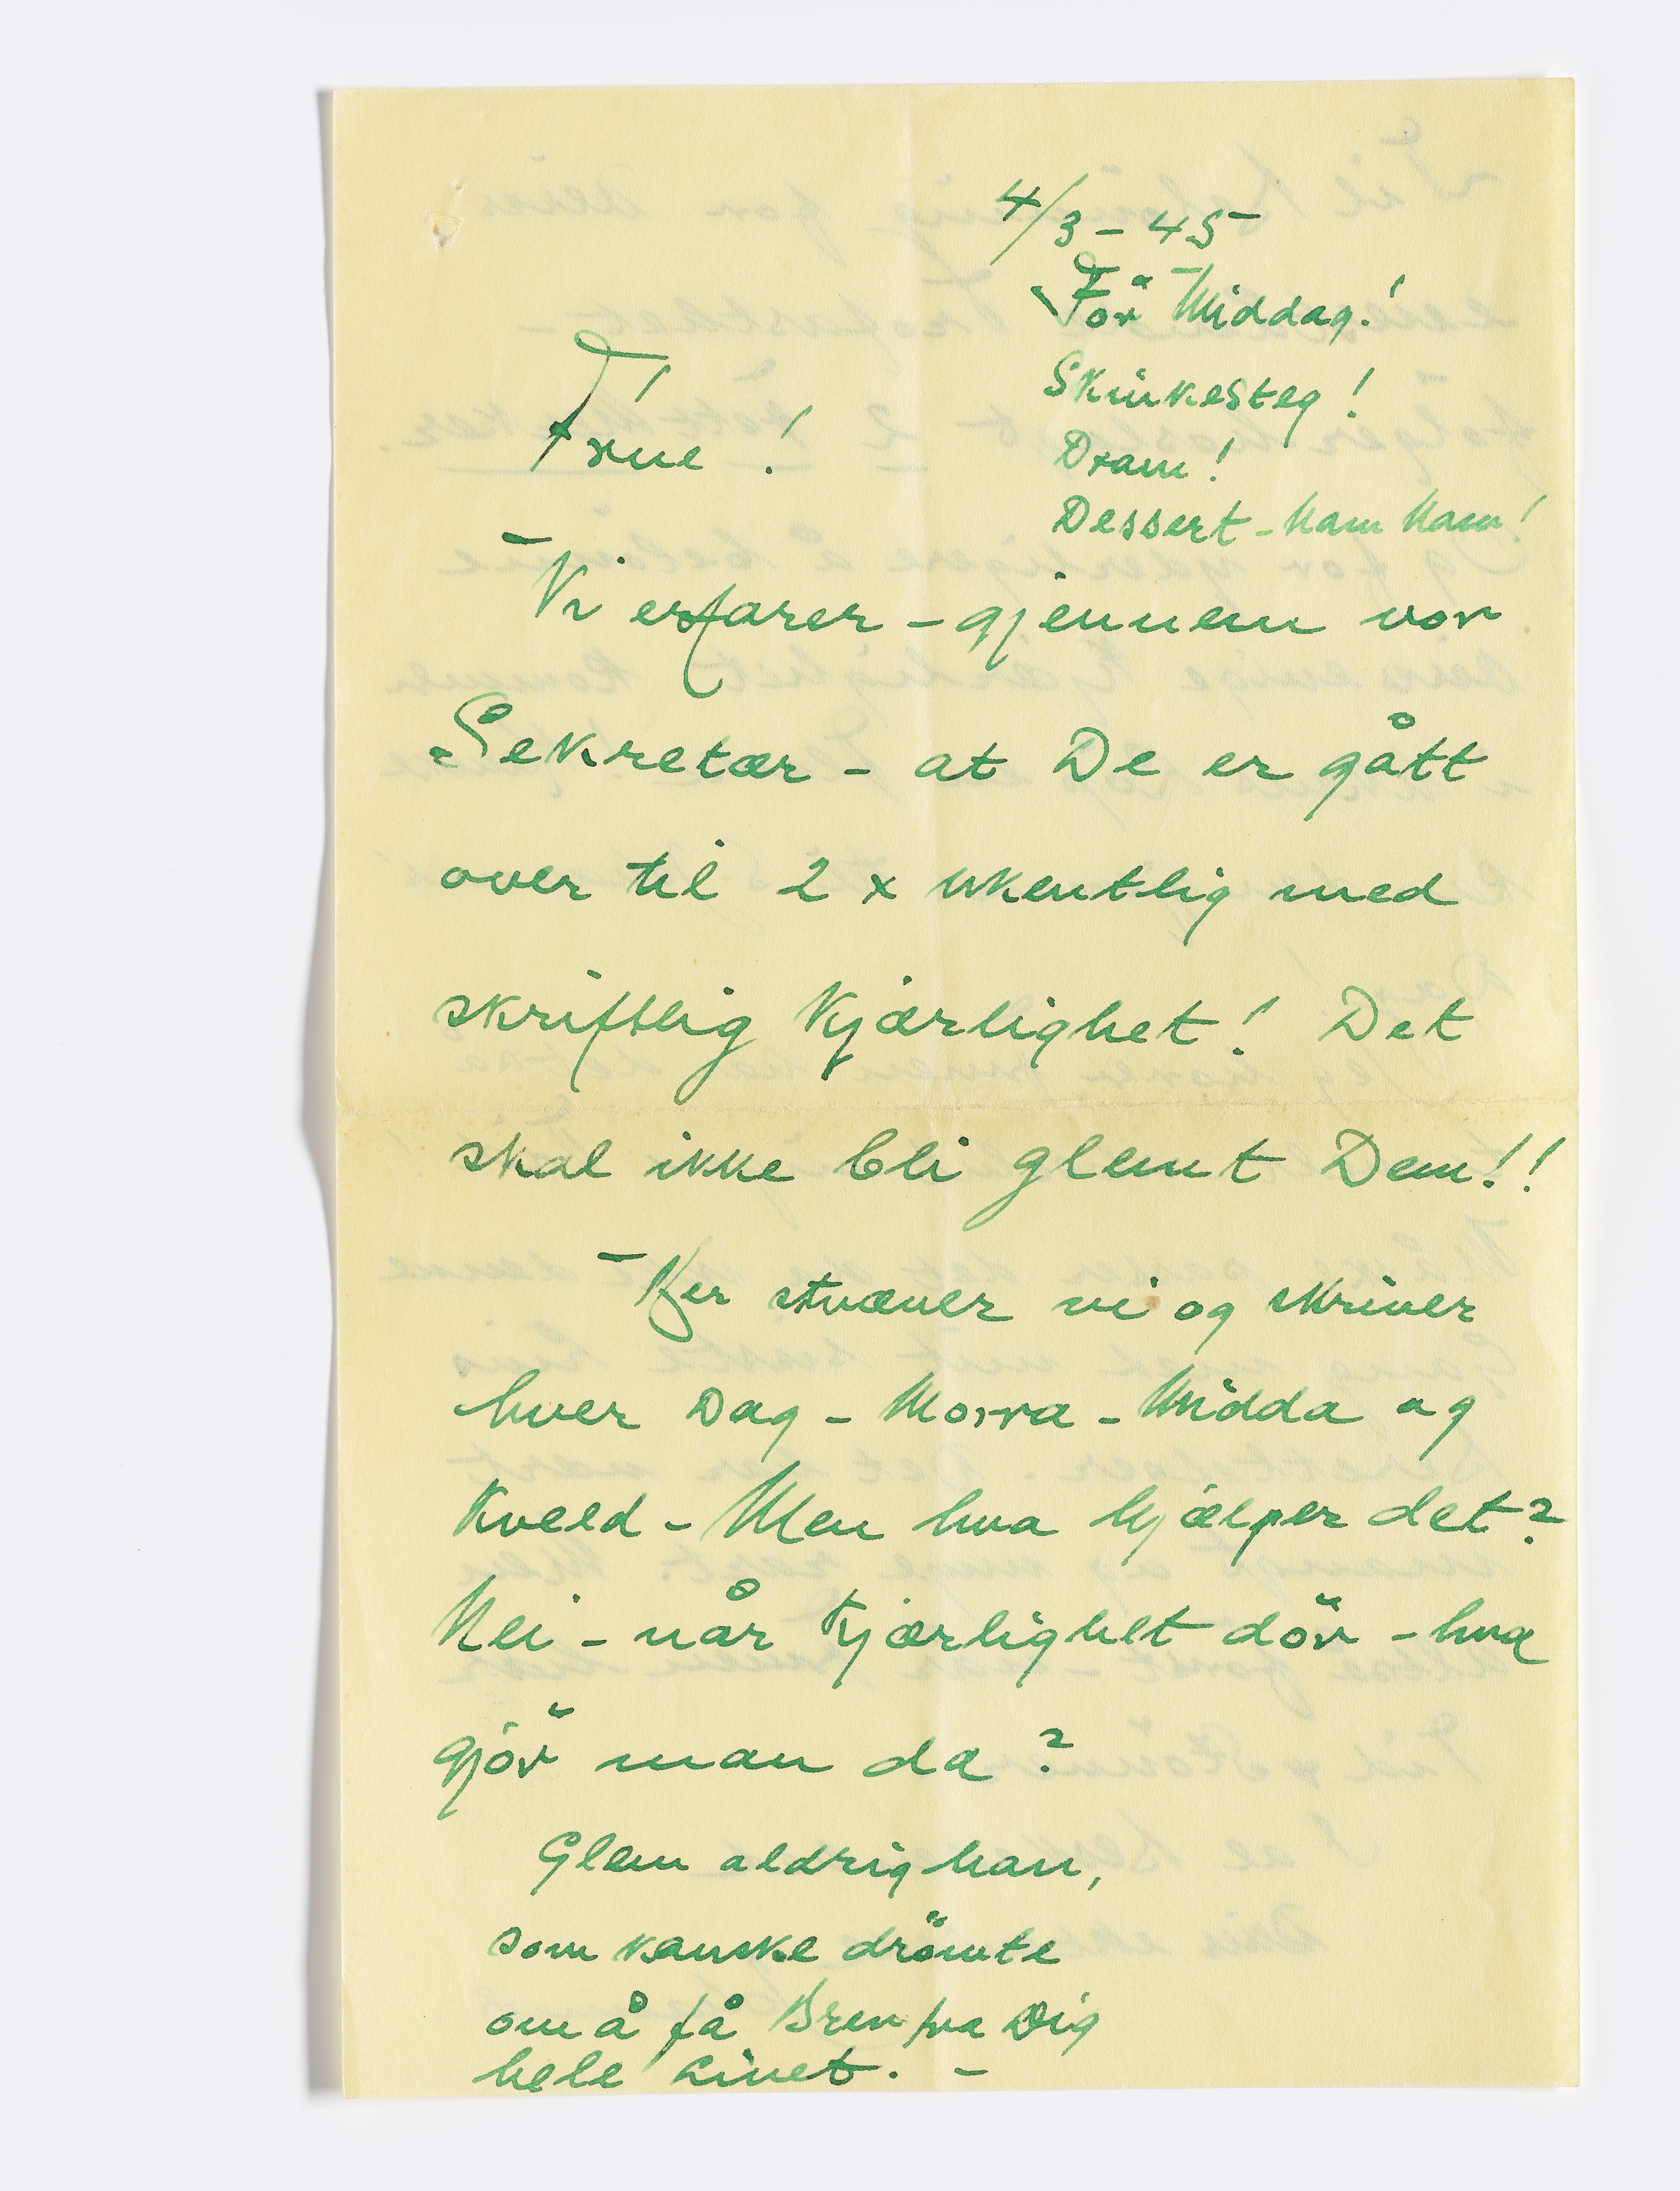 4/3 - 45
För Middag!
Skinkesteg!
Dram!
Dessert - Nam Nam!
Frue!
Vi erfarer - gjennem vor
Sekretær - at De er gått
over til 2 x ukentlig med
skriftlig Kjærlighet! Det
skal ikke bli glemt Dem!!
Her stræver vi og skriver
hver Dag - Morra - Midda og
Kveld - Men hva hjælper det?
Nei - når Kjærlighet dör - hva
gjör man da?
Glem aldrig han,
som kanske drömte
om å få Brev fra Dig
hele Livet. -